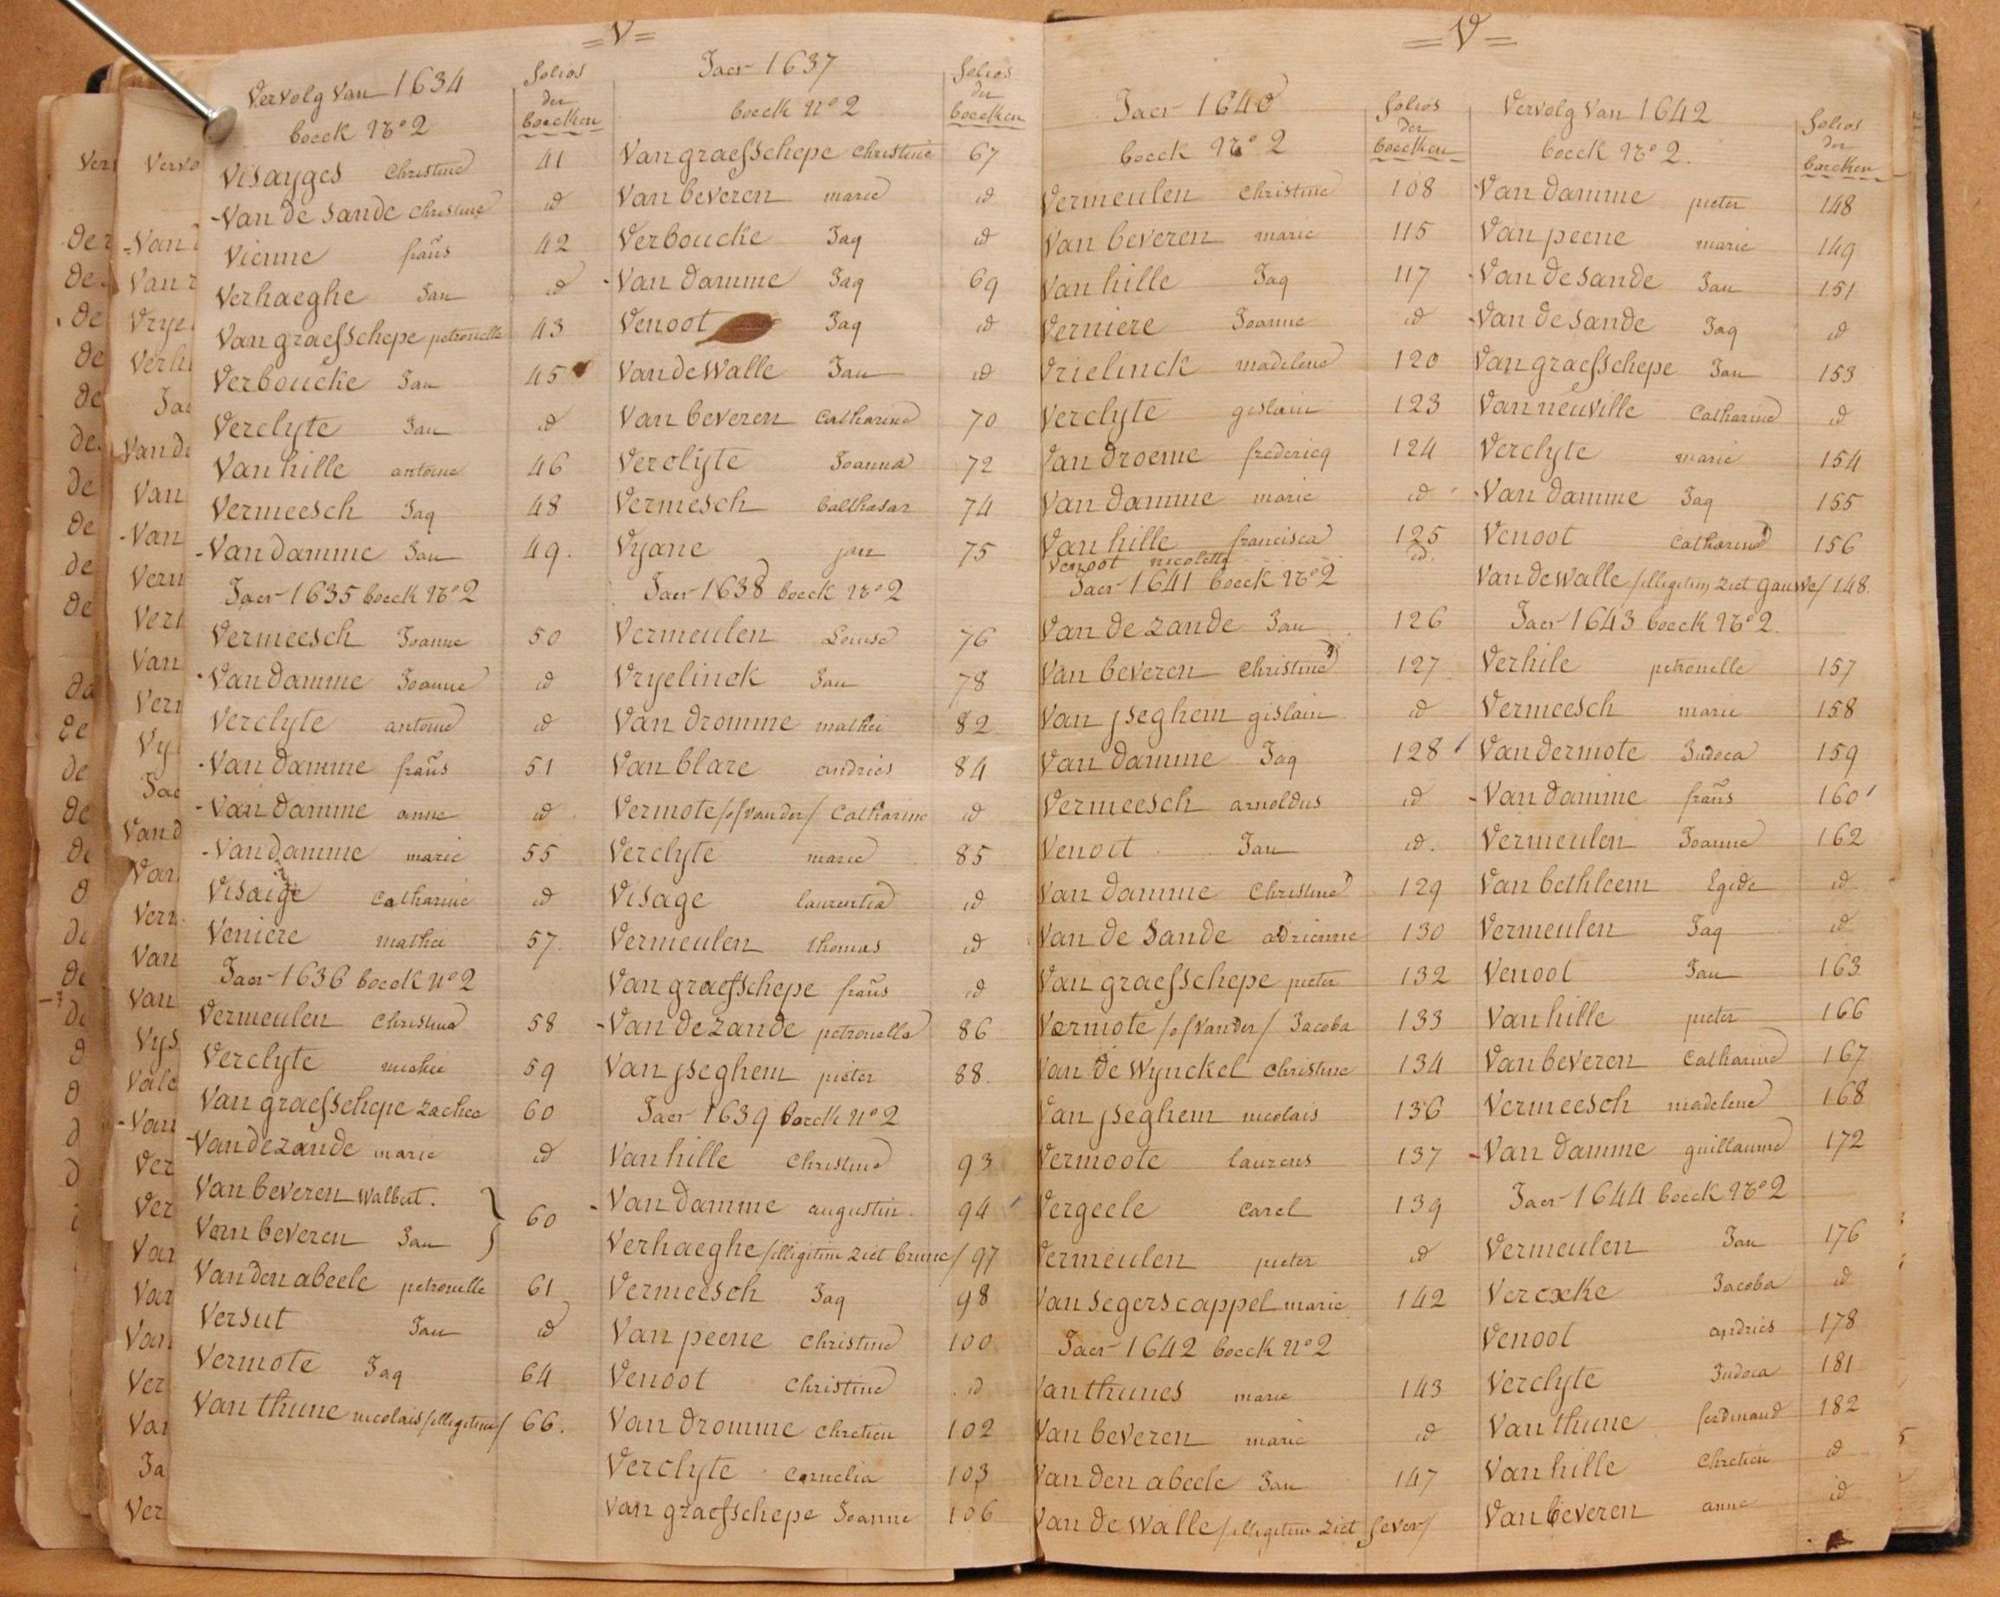 =V=
Vervolg Van 1634
boeck No 2
folios der boecken
Visayges Christine 41
-Van de Sande Christine id
Vienne frañs 42
Verhaeghe Jan id
Van graefschepe petronelle 43
Verboucke Jan 45
Verclyte Jan id
Van hille antoine 46
Vermeesch Jaq 48
-Van Damme Jan 49.
Jaer 1635 boeck No 2
Vermeesch Joanne 50
-Van Damme Joanne id
Verclyte antoine id
-Van Damme frañs 51
-Van Damme anne id
-Van Damme marie 55
Visaige Catharine id
Veniere mathei 57.
Jaer 1636 boeck No 2
Vermeulen Christine 58
Verclyte michie 59
Van graefschepe zachee 60
-Van de zande marie id
Van beveren Walbut. }
Van beveren Jan } 60
Van den abeele petronelle 61
Versut Jan id
Vermote Jaq 64
Van thune nicolais /illegitime/ 66.
Jaer 1637
boeck No 2
folios der boecken
Van graefschepe Christine 67
Van beveren marie id
Verboucke Jaq id
-Van Damme Jaq 69
Venoot Jaq id
Van de Walle Jan id
Van beveren Catharine 70
Verclyte Joanna 72
Vermesch balthasar 74
Vyane jan 75
Jaer 1638 boeck No 2
Vermeulen Louise 76
Vryelinck Jan 78
Van Dromme mathei 82
Van blare andries 84
Vermote /of Van der/ Catharine id
Verclyte marie 85
Visage laurentia id
Vermeulen thomas id
Van graefschepe frañs id
-Van de zande petronelle 86
Van yseghem pieter 88.
Jaer 1639 boeck No 2
Van hille Christine 93
-Van Damme augustin. 94
Verhaeghe /illigitime Ziet brune/ 97
Vermeesch Jaq 98
Van peene Christine 100
Venoot Christine id
Van Dromme Chretien 102
Verclyte Cornelia 103
Van graefschepe Joanne 106
=V=
Jaer 1640
boeck No 2
folios der boecken
Vermeulen Christine 108
Van beveren marie 115
Van hille Jaq 117
Verniere Joanne id
Vrielinck madelene 120
Verclyte gislain 123
Van Droeme fredericq 124
Van Damme marie id
Van hille francisca 125
Venoot nicoletta id.
Jaer 1641 boeck No 2
Van de zande Jan 126
Van beveren Christine 127
Van yseghem gislain id
Van Damme Jaq 128
Vermeesch arnoldus id
Venoit Jan id.
Van Damme Christine 129
Van de Sande adrienne 130
Van graefschepe pieter 132
Vermote /of Van der/ Jacoba 133
Van de Wynckel Christine 134
Van yseghem nicolais 136
Vermoote laurens 137
Vergeele Carel 139
Vermeulen pieter id
Van Segerscappel marie 142
Jaer 1642 boeck No 2
Van thunes marie 143
Van beveren marie id
Van den abeele Jan 147
Van de Walle /illegitime Ziet fever/
Vervolg Van 1642
boeck No 2.
folios der boecken
-Van Damme pieter 148
Van peene marie 149
-Van de Sande Jan 151
-Van de Sande Jaq id
Van graefschepe Jan 153
Van neuville Catharine id
Verclyte marie 154
-Van Damme Jaq 155
Venoot Catharine 156
Van de Walle /illigitim ziet gauwe/ 148.
Jaer 1643 boeck No 2.
Verhile petronelle 157
Vermeesch marie 158
Van dermote Judoca 159
-Van Damme frañs 160
Vermeulen Joanne 162
Van bethleem Egide id
Vermeulen Jaq id
Venoot Jan 163
Van hille pieter 166
Van beveren Catharine 167
Vermeesch madelene 168
-Van Damme guillaume 172
Jaer 1644 boeck No 2
Vermeulen Jan 176
Vercxke Jacoba id
Venoot andries 178
Verclyte Judoca 181
Van thune ferdinand 182
Van hille Chretien id
Van beveren anne id